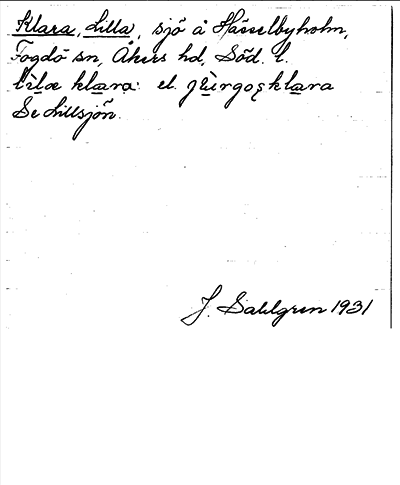 Klara, Lilla, sjö å Hässelbyholm,
Fogdö sn, Åkers hd, Söd. l.
lìlæ klara: el. klara
Se Lillsjön.
J. Sahlgren 1931